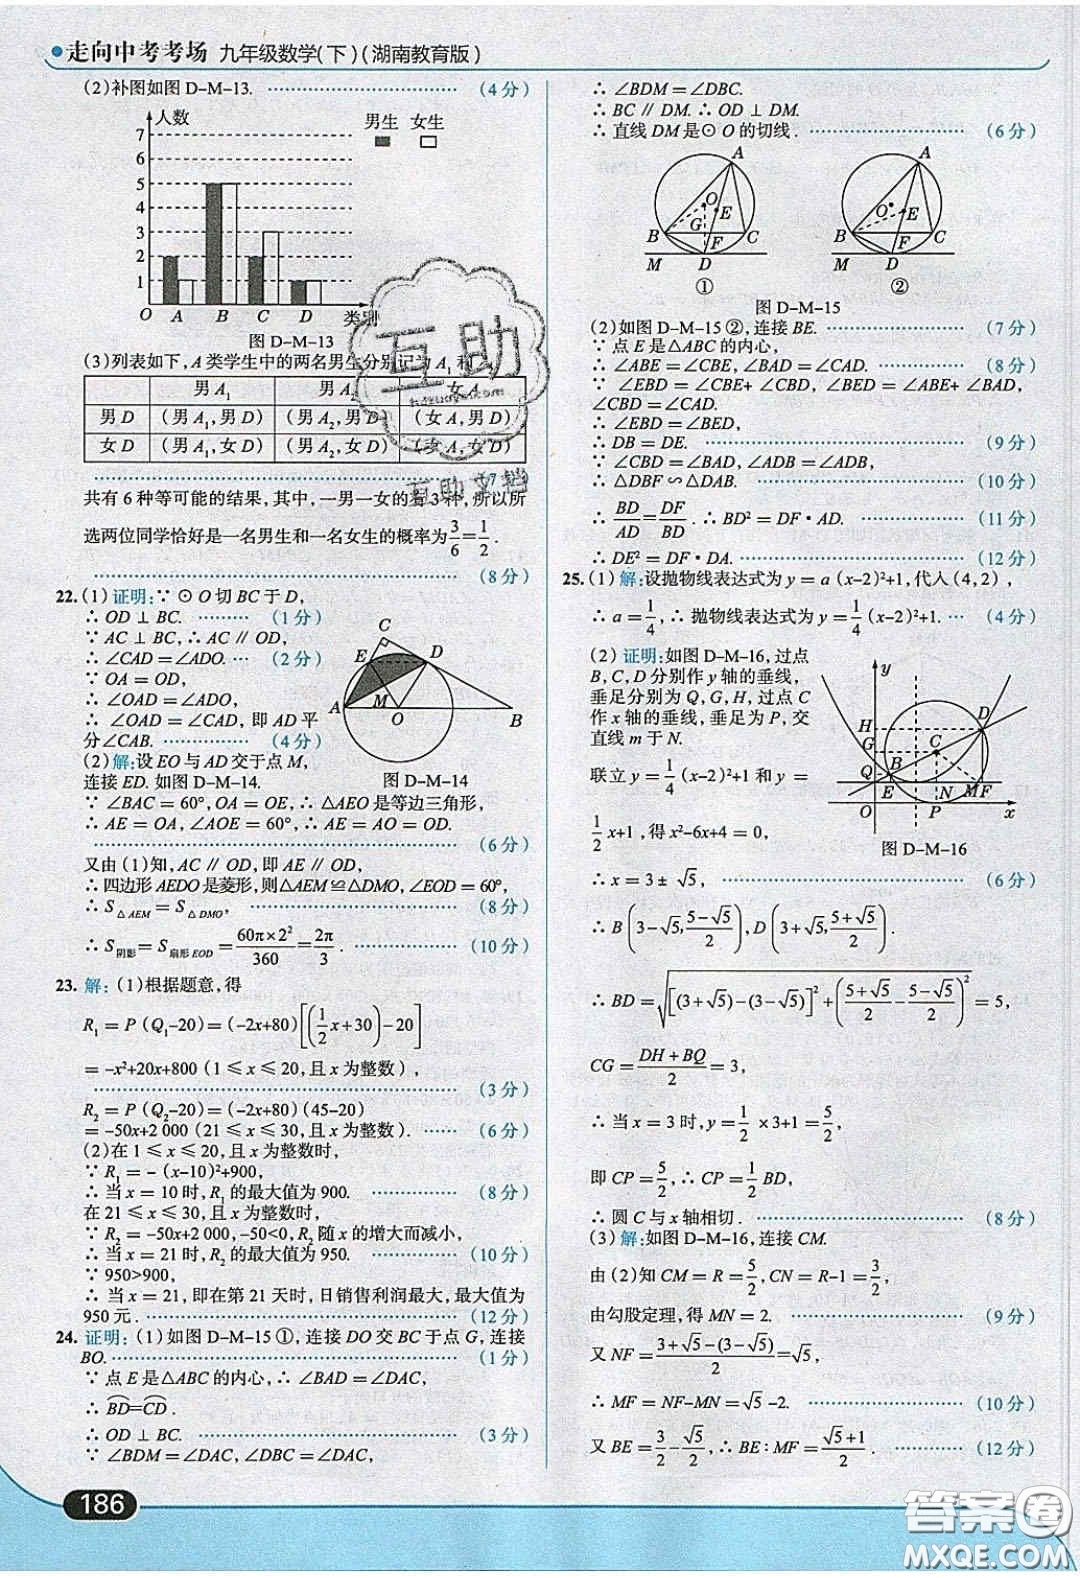 走向中考考场 九年级数学(下)(湖南教育版)
(2)补图如图 D-M-13. (4分)
人数
男生 女生
7
6
5
4
3
2
1
O A B C D 类别
图 D-M-13
(3)列表如下,A类学生中的两名男生分别记为A₁和
男A₁ 男A₂ 女A
男D (男A₁,男D) (男A₂,男D) (女A,男D)
女D (男A₁,女D) (男A₂,女D) (女A,女D)
共有6种等可能的结果,其中,一男一女的有3种,所以所
选两位同学恰好是一名男生和一名女生的概率为3/6=1/2.
(8分)
22.(1)证明:∵⊙O切BC于D,
∴OD⊥BC. (1分)
∵AC⊥BC,∴AC∥OD,
∴∠CAD=∠ADO. (2分)
∵OA=OD,
∴∠OAD=∠ADO,
∴∠OAD=∠CAD,即AD平
分∠CAB. (4分)
C
E D
M
A O B
图 D-M-14
(2)解:设EO与AD交于点M,
连接ED.如图D-M-14.
∵∠BAC=60°,OA=OE,∴△AEO是等边三角形,
∴AE=OA,∠AOE=60°,∴AE=AO=OD.
(6分)
又由(1)知,AC∥OD,即AE∥OD,
∴四边形AEDO是菱形,则△AEM≌△DMO,∠EOD=60°,
∴S△AEM=S△DMO, (8分)
∴S阴影=S扇形EOD=60π×2²/360=2π/3. (10分)
23.解:(1)根据题意,得
R₁=P(Q₁-20)=(-2x+80)[(1/2x+30)-20]
=-x²+20x+800(1≤x≤20,且x为整数),
(3分)
R₂=P(Q₂-20)=(-2x+80)(45-20)
=-50x+2 000(21≤x≤30,且x为整数). (6分)
(2)在1≤x≤20,且x为整数时,
∵R₁=-(x-10)²+900,
∴当x=10时,R₁的最大值为900. (8分)
在21≤x≤30,且x为整数时,
∵R₂=-50x+2 000,-50<0,R₂随x的增大而减小,
∴当x=21时,R₂的最大值为950. (10分)
∵950>900,
∴当x=21,即在第21天时,日销售利润最大,最大值为
950元. (12分)
24.证明:(1)如图D-M-15①,连接DO交BC于点G,连接
BO. (1分)
∵点E是△ABC的内心,∴∠BAD=∠DAC,
∴BD=CD.
∴OD⊥BC. (3分)
∵∠BDM=∠DAC,∠DBC=∠DAC,
∴∠BDM=∠DBC.
∴BC∥DM.∴OD⊥DM.
∴直线DM是⊙O的切线. (6分)
A
O
G E
B F C
M D
①
A
O E
B F C
M D
②
图 D-M-15
(2)如图D-M-15②,连接BE. (7分)
∵点E是△ABC的内心,
∴∠ABE=∠CBE,∠BAD=∠CAD. (8分)
∵∠EBD=∠CBE+∠CBD,∠BED=∠ABE+∠BAD,
∠CBD=∠CAD.
∴∠EBD=∠BED,
∴DB=DE. (9分)
∴∠CBD=∠BAD,∠ADB=∠ADB,
∴△DBF∽△DAB. (10分)
∴BD/AD=DF/BD.∴BD²=DF·AD. (11分)
∴DE²=DF·DA. (12分)
25.(1)解:设抛物线表达式为y=a(x-2)²+1,代入(4,2),
∴a=1/4,∴抛物线表达式为y=1/4(x-2)²+1. (4分)
(2)证明:如图D-M-16,过点
B,C,D分别作y轴的垂线,
垂足分别为Q,G,H,过点C
作x轴的垂线,垂足为P,交
直线m于N.
联立y=1/4(x-2)²+1和y=
1/2x+1,得x²-6x+4=0,
y
H D
G C
Q B
E N MF
O P x
图 D-M-16
∴x=3±√5, (6分)
∴B(3-√5,(5-√5)/2),D(3+√5,(5+√5)/2).
∴BD=√([(3+√5)-(3-√5)]²+((5+√5)/2-(5-√5)/2)²)=5,
CG=(DH+BQ)/2=3,
∴当x=3时,y=1/2×3+1=5/2,
即CP=5/2,∴CP=1/2BD,
∴圆C与x轴相切. (8分)
(3)解:如图D-M-16,连接CM.
由(2)知CM=R=5/2,CN=R-1=3/2,
由勾股定理,得MN=2. (9分)
又NF=(3+√5-(3-√5))/2=√5,
∴MF=NF-MN=√5-2. (10分)
又BE=3/2-√5/2,∴BE:MF=(√5+1)/2. (12分)
186
互助
互助文档
答案圈
MXQE.COM